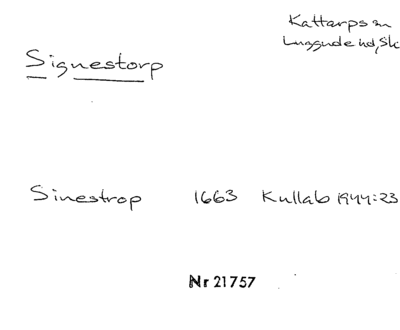 Kattarps sn
Luggude hd, Sk
Signestorp
Sinestrop 1663 Kullab 1944:23
Nr 21757